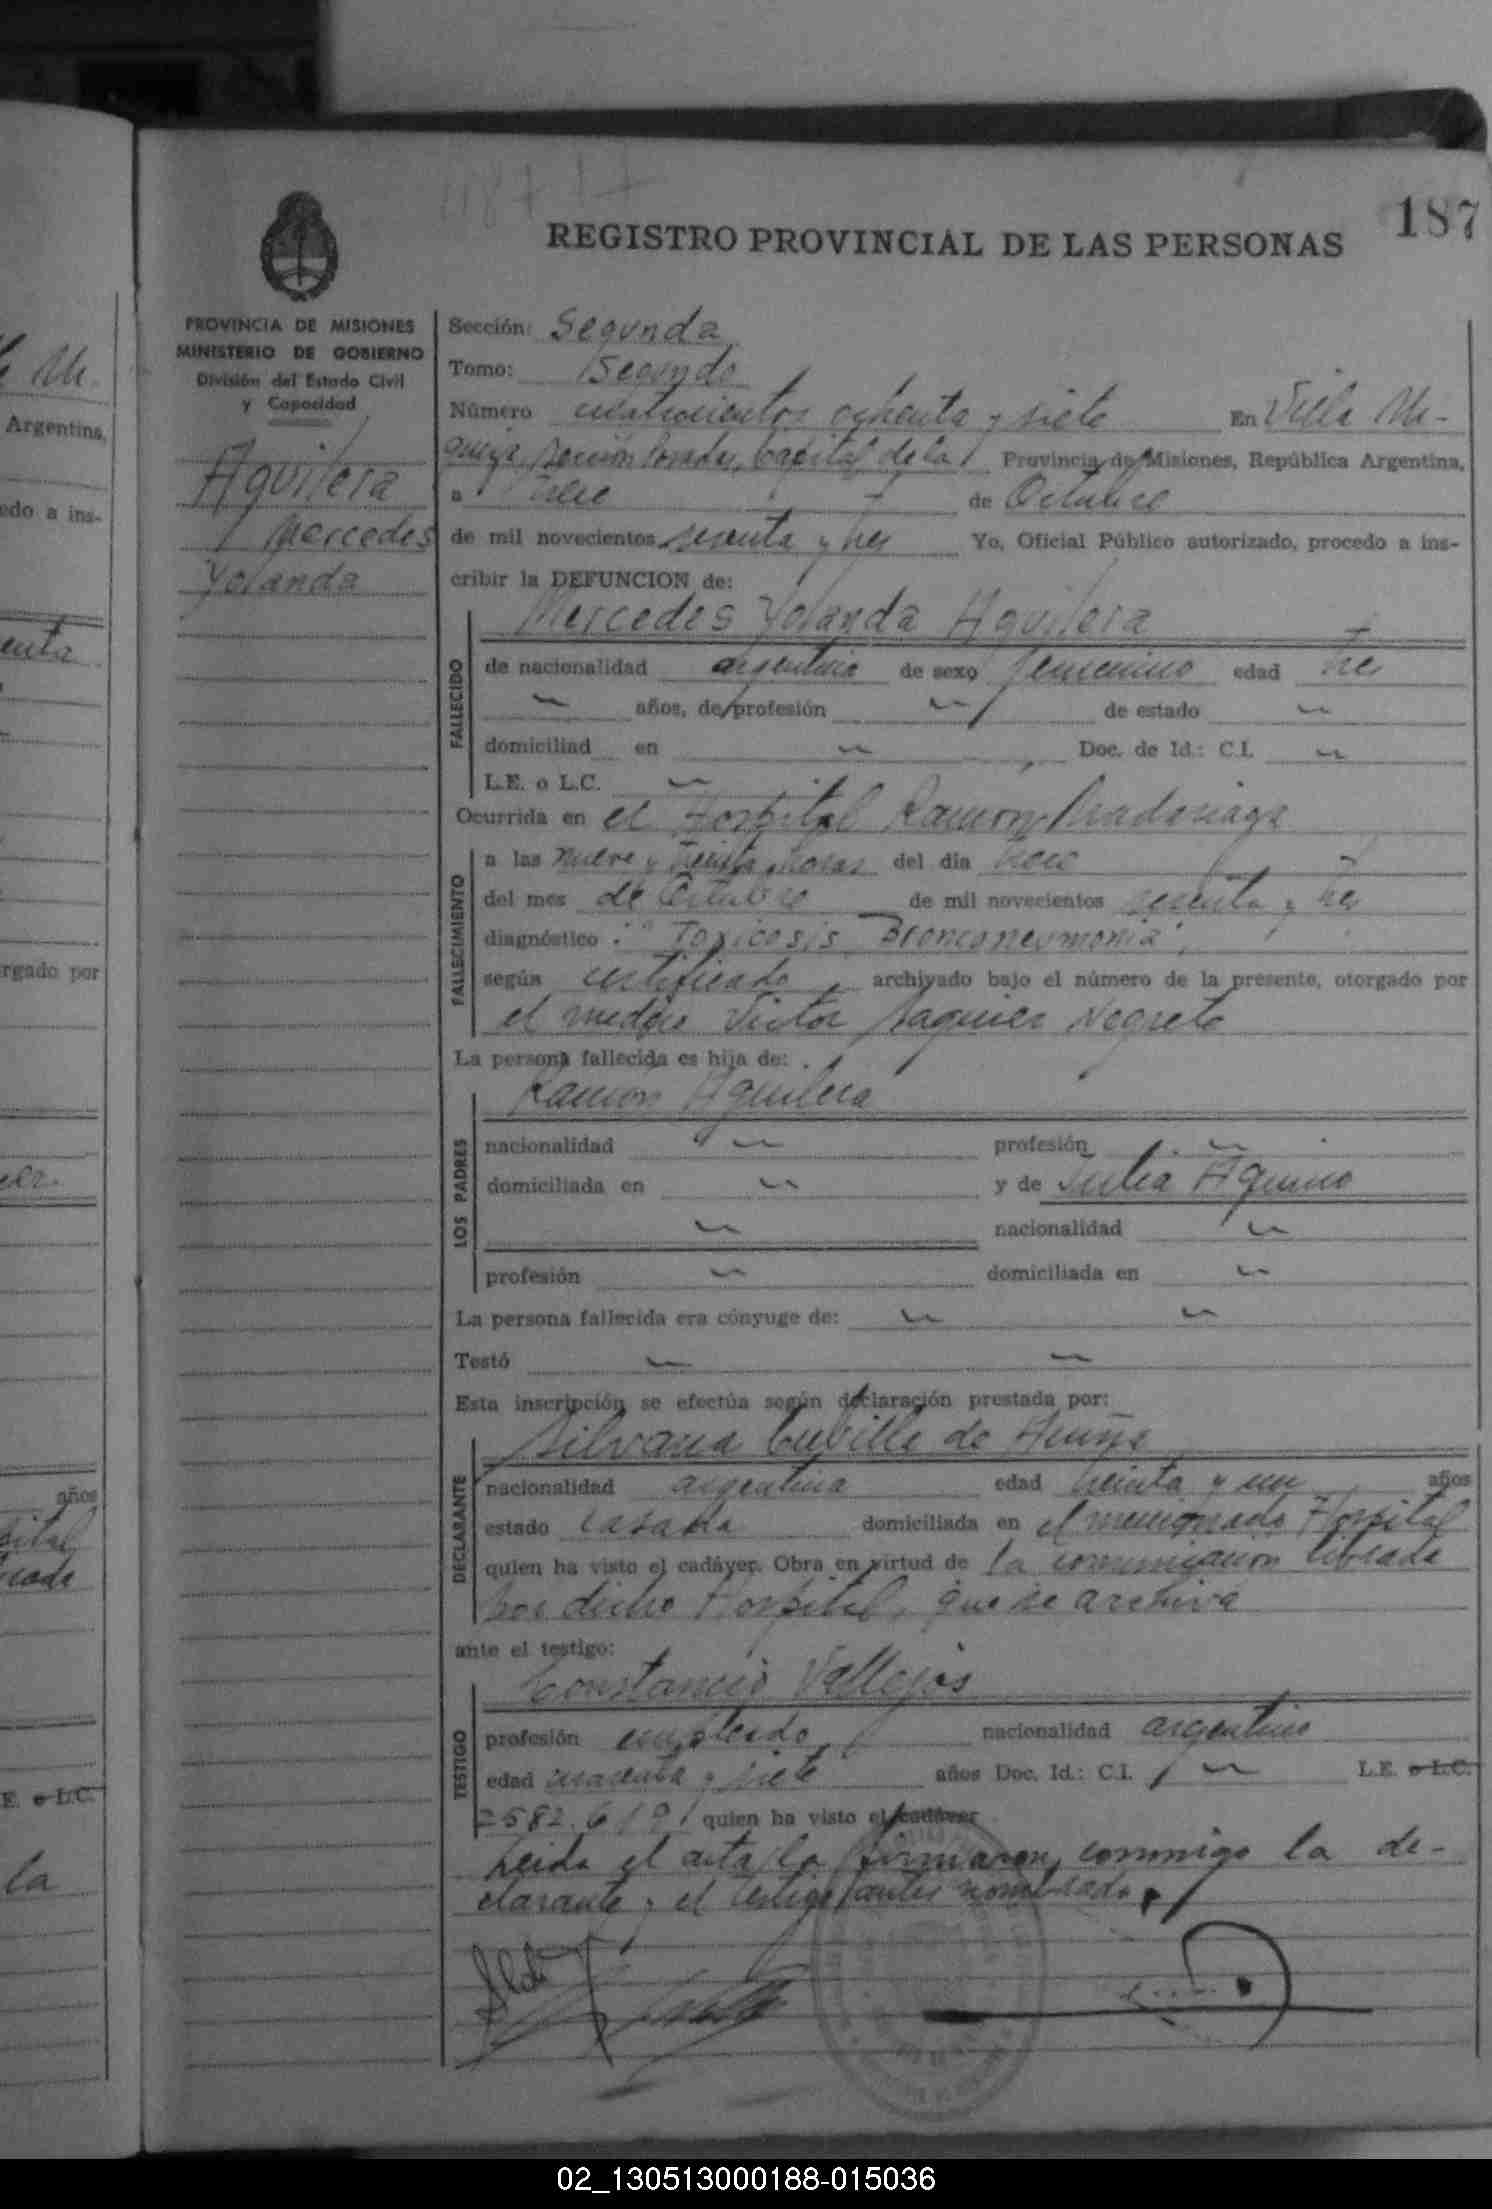 187
REGISTRO PROVINCIAL DE LAS PERSONAS
PROVINCIA DE MISIONES
MINISTERIO DE GOBIERNO
División del Estado Civil
y Capacidad
Aguilera
Mercedes
Yolanda
Sección: Segunda
Tomo: Segundo
Número cuatrocientos ochenta y siete En Villa Ur-
quiza, Sección Posadas, Capital de la Provincia de Misiones, República Argentina,
a trece de Octubre
de mil novecientos sesenta y tres Yo, Oficial Público autorizado, procedo a ins-
cribir la DEFUNCION de:
Mercedes Yolanda Aguilera
FALLECIDO
de nacionalidad argentina de sexo femenino edad tres
años, de profesión de estado
domiciliad en Doc. de Id.: C.I.
L.E. o L.C.
Ocurrida en el Hospital Ramón Madariaga
FALLECIMIENTO
a las nueve y treinta horas del día trece
del mes de Octubre de mil novecientos sesenta y tres
diagnóstico : "Toxicosis Bronconeumonia",
según certificado archivado bajo el número de la presente, otorgado por
el médico Victor Saguier Negrete
La persona fallecida es hija de:
Ramón Aguilera
LOS PADRES
nacionalidad profesión
domiciliada en y de Julia Aquino
nacionalidad
profesión domiciliada en
La persona fallecida era cónyuge de:
Testó
Esta inscripción se efectúa según declaración prestada por:
Silvana Cubilla de
DECLARANTE
nacionalidad argentina edad treinta y un años
estado casada domiciliada en el mencionado Hospital
quien ha visto el cadáver. Obra en virtud de la comunicación librada
por dicho Hospital, que se archiva
ante el testigo:
Constancio Vallejos
TESTIGO
profesión empleado nacionalidad argentino
edad cuarenta y siete años Doc. Id.: C.I. L.E. o L.C.
2582.619 quien ha visto el cadáver
Leida el acta la firmaron conmigo la de-
clarante y el testigo antes nombrado.
Argentina,
edo a ins-
enta
rgado por
años
E. o L.C.
la
02_130513000188-015036